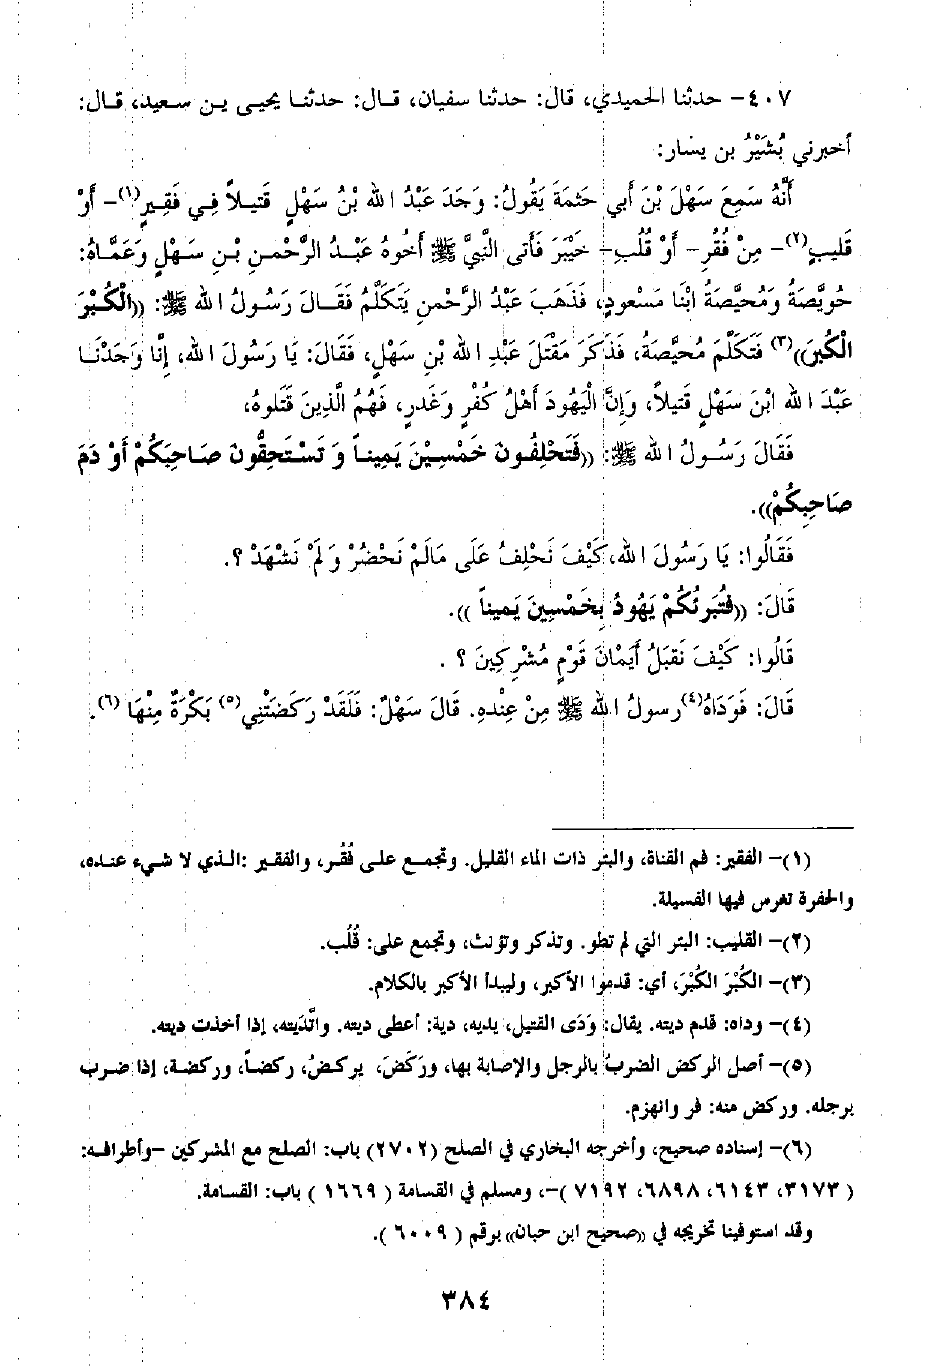 ٤٠٧- حدثنا الحميدي، قال: حدثنا سفيان، قـال: حدثنـا يحيـى بـن سـعيد، قـال:
أخبرني بُشَيْرُ بن يسار:
أَنَّهُ سَمِعَ سَهْلَ بْنَ أَبي حَثمَةَ يَقُولُ: وَجَدَ عَبْدُ الله بْنُ سَهْلٍ قَتيلاً فِي فَقِيرٍ(١)- أَوْ
قَليبٍ(٢)- مِنْ فُقُرِ- أَوْ قُلُبِ- خَيْبَرَ فَأتى النَّبِيَّ ﷺ أَخُوهُ عَبْـدُ الرَّحْمـنِ بْـنِ سَـهْلٍ وَعَمَّاهُ:
حُوَيِّصَةُ وَمُحيِّصَةُ ابْنا مَسْعودٍ، فَذَهَبَ عَبْدُ الرَّحْمنِ يَتَكَلَّمُ فَقَـالَ رَسُـولُ الله ﷺ: ((الْكُبْرَ
الْكُبرَ))(٣) فَتَكَلَّمَ مُحيِّصَةُ، فَذكَرَ مَقْتَلَ عَبْدِ الله بْنِ سَهْلٍ، فَقَالَ: يَا رَسُولَ الله، إنَّا وَجَدْنَـا
عَبْدَ الله ابْنَ سَهْلٍ قَتيلاً، وَإنَّ الْيَهُودَ أَهْلُ كُفْرٍ وَغَدرٍ، فَهُمُ الَّذِينَ قَتَلوهُ،
فَقَالَ رَسُـولُ الله ﷺ: ((فَتَحْلِفُـونَ خَمْسِـيْنَ يَمِينـاً وَ تَسْـتَحِقُّونَ صَـاحِبَكُمْ أَوْ دَمَ
صَاحِبِكُمْ)).
فَقَالُوا: يَا رَسُولَ الله، كَيْفَ نَحْلِفُ عَلَى مَالَمْ نَحْضُرْ وَلَمْ نَشْهَدْ ؟.
قَالَ: ((فَتُبَرِئُكُمْ يَهُودُ بِخَمْسِينَ يَمِيناً )).
قَالُوا: كَيْفَ نَقبَلُ أَيْمَانَ قَوْمٍ مُشْرِكِينَ ؟ .
قَالَ: فَوَدَاهُ(٤) رسولُ الله ﷺ مِنْ عِنْدِهِ. قَالَ سَهْلٌ: فَلَقَدْ رَكَضَتْنِي(٥) بَكْرَةٌ مِنْهَا (٦).
(١)- الفقير: فم القناة، والبئر ذات الماء القليل. وتجمـع علـى فُقُـر، والفقير :الـذي لا شيء عنـده،
والحفرة تغرس فيها الفسيلة.
(٢)- القليب: البئر التي لم تطو. وتذكر وتؤنث، وتجمع على: قُلُب.
(٣)- الكُبْرَ الكُبْرَ، أي: قدموا الأكبر، وليبدأ الأكبر بالكلام.
(٤)- وداه: قدم ديته. يقال: وَدَى القتيل، يديه، دية: أعطى ديته. واتَّدَيته، إذا أخذت ديته.
(٥)- أصل الركض الضربُ بالرجل والإصابة بها، ورَكَضَ، يركـضُ، ركضـاً، وركضـة، إذا ضـرب
برجله. وركض منه: فر وانهزم.
(٦)- إسناده صحيح، وأخرجه البخاري في الصلح (٢٧٠٢) باب: الصلح مع المشركين -وأطرافـه:
( ٣١٧٣، ٦١٤٣، ٦٨٩٨، ٧١٩٢ )-، ومسلم في القسامة ( ١٦٦٩ ) باب: القسامة.
وقد استوفينا تخريجه في «صحيح ابن حبان» برقم ( ٦٠٠٩ ).
٣٨٤